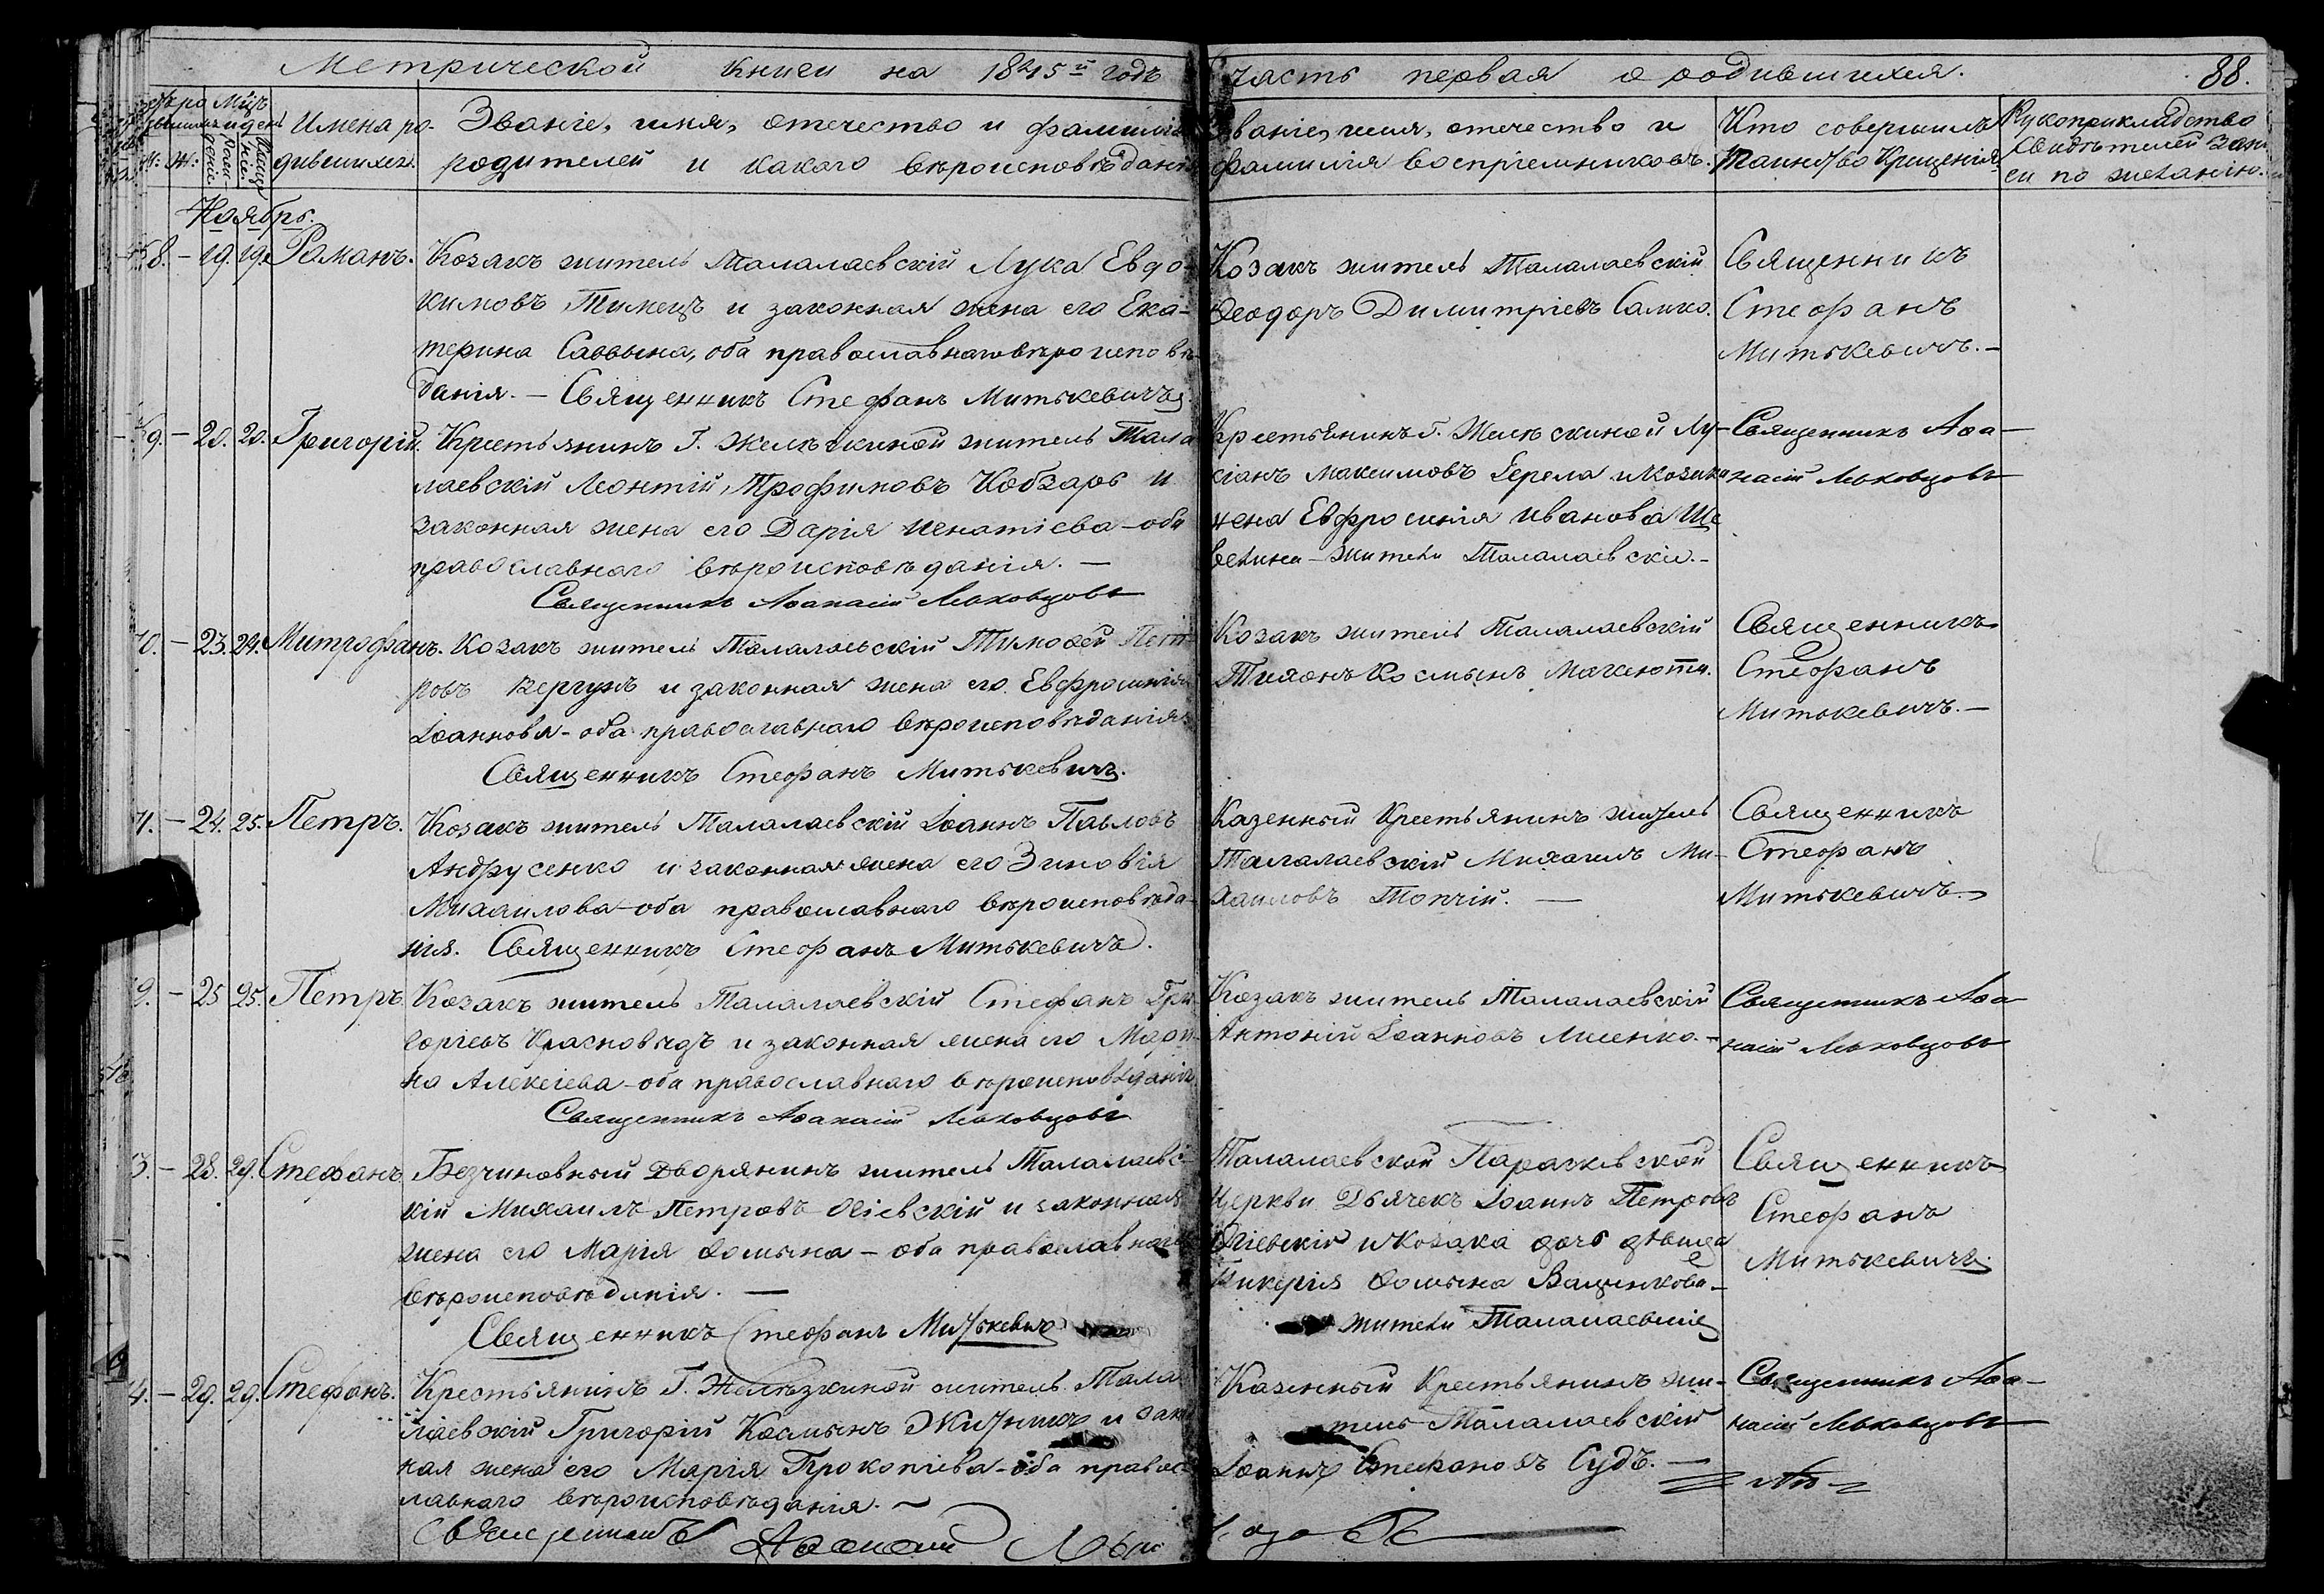 Метрической книги на 1845й годъ часть первая о родившихся. 88.
Имена ро-
дившихся.
Званіе, имя, отечество и фамилія
родителей и какого вѣроисповѣданія
Званіе, имя, отечество и
фамилія воспріемниковъ.
Кто совершилъ
таинство Крещенія
Рукоприкладство
свидѣтелей запи
си по желанію.
Ноябрь.
8. - 19. 19. Романъ.
Козакъ житель Талалаевскій Лука Евдо-
кимовъ Тимецъ и законная жена его Ека-
терина Саввина, оба православнаго вѣроисповѣ-
данія. - Священникъ Стефанъ Митькевичъ
Козакъ житель Талалаевскій
Ѳеодоръ Димитріевъ Самко.
Священникъ
Стефанъ
Митькевичъ. -
9. - 20. 20. Григорій.
Крестьянинъ Г. Желѣзкиной житель Тала
лаевскій Леонтій Трофимовъ Кобзарь и
законная жена его Дарія Игнатіева - оба
православнаго вѣроисповѣданія. -
Священникъ Аѳанасій Льховцовъ
Крестьянинъ Г. Желѣзкиной Лу-
кіанъ Максимовъ Герела и козака
жена Евфросинія Иванова Ше
велина - жители Талалаевскіе. -
Священникъ Аѳа-
насій Льховцовъ
10. - 23. 24. Митрофанъ.
Козакъ житель Талалаевскій Тимоѳей Пет
ровъ Вергунъ и законная жена его Евфросинія
Іоаннова - оба православнаго вѣроисповѣданія
Священникъ Стефанъ Митькевичъ.
Козакъ житель Талалаевскій
Тихонъ Космынъ
Священникъ
Стефанъ
Митькевичъ. -
11. - 24. 25. Петръ.
Козакъ житель Талалаевскій Іоаннъ Павловъ
Андрусенко и законная жена его Зиновія
Михаилова - оба православнаго вѣроисповѣда-
нія. Священникъ Стефанъ Митькевичъ.
Казенный Крестьянинъ житель
Талалаевскій Михаилъ Ми-
хаиловъ Топчій. -
Священникъ
Стефанъ
Митькевичъ.
2. - 25 25. Петръ.
Козакъ житель Талалаевскій Стефанъ Гри
горіевъ Красновидъ и законная жена его Мари
на Алексіева - оба православнаго вѣроисповѣданія
Священникъ Аѳанасій Льховцовъ
Козакъ житель Талалаевскій
Антоній Іоанновъ Лисенко. -
Священникъ Аѳа
насій Льховцовъ
3. - 28. 29. Стефанъ
Безчиновный Дворянинъ житель Талалаевс-
кій Михаилъ Петровъ Огіевскій и законная
жена его Марія Ѳомина - оба православнаго
вѣроисповѣданія. -
Священникъ Стефанъ Митькевичъ
Талалаевской Параскевской
Церкви Дьячекъ Іоаннъ Петровъ
Огіевскій и козака дочь дѣвица
Гликерія Ѳомина Ващенкова -
жители Талалаевскіе
Священникъ
Стефанъ
Митькевичъ
4. - 29. 29. Стефанъ.
Крестьянинъ Г. Желѣзкиной житель Тала
лаевскій Григорій Космынъ Житникъ и зако
ная жена его Марія Прокопіева - оба правос-
лавнаго вѣроисповѣданія. -
Священникъ Аѳанасій Льхо
Казенный Крестьянинъ жи-
тель Талалаевскій
Іоаннъ Стефановъ Судъ. -
вцовъ
Священникъ Аѳа-
насій Льховцовъ